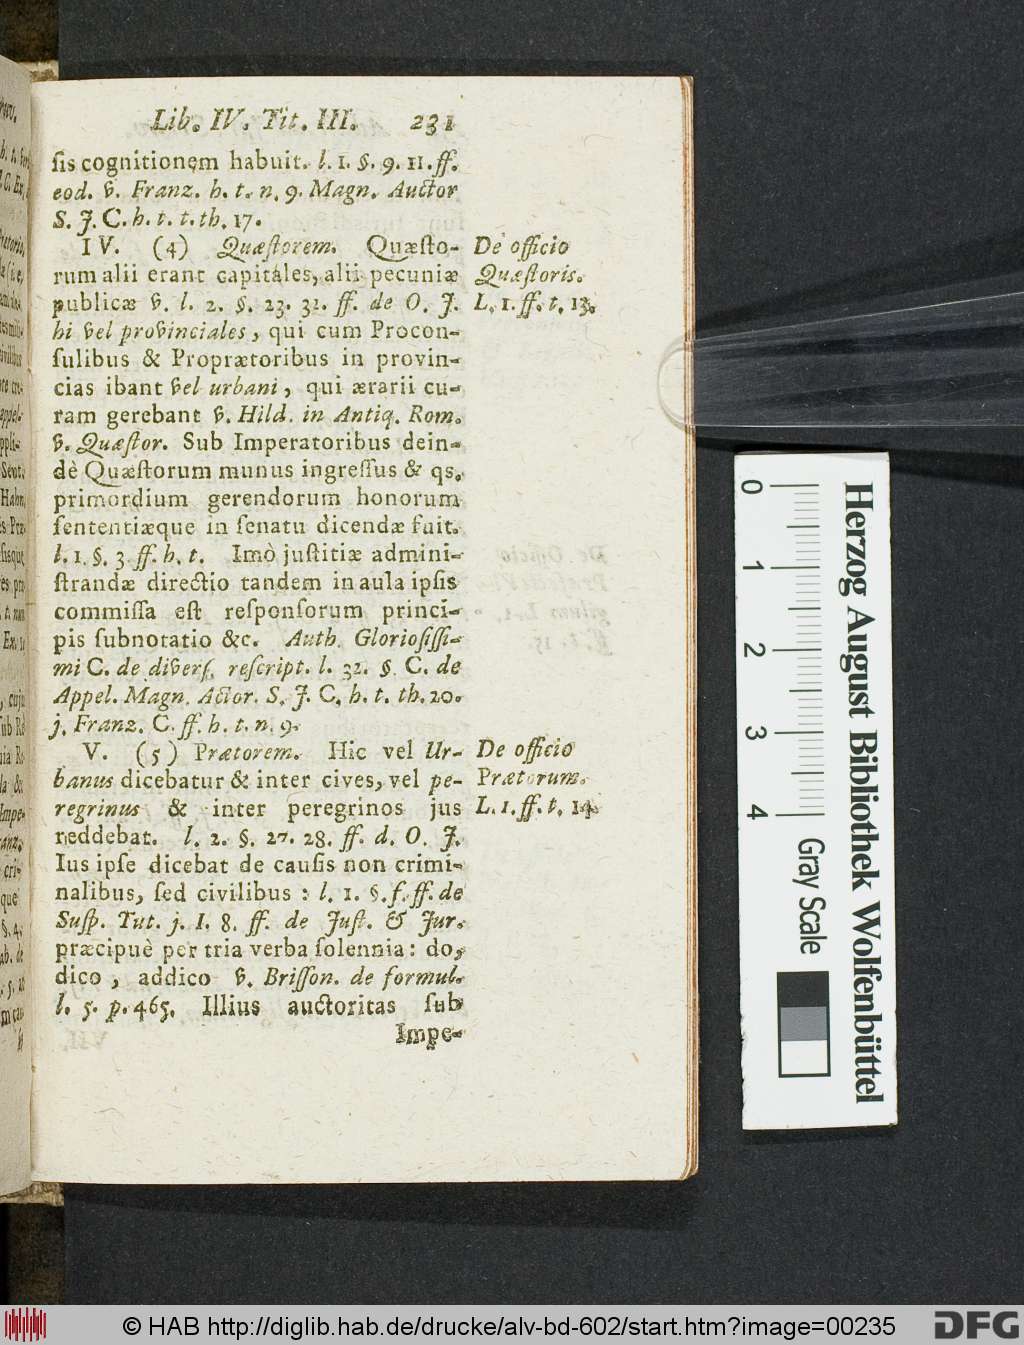 Lib. IV. Tit. III. 231
ſis cognitionem habuit. l. 1. §. 9. 11. ff.
eod. v. Franz. h. t. n. 9. Magn. Auctor
S. J. C. h. t. t. th. 17.
IV. (4) Quæſtorem. Quæſto-
rum alii erant capitáles, alii pecuniæ
publicæ v. l. 2. §. 23. 32. ff. de O. J.
hi vel provinciales, qui cum Procon-
ſulibus & Proprætoribus in provin-
cias ibant vel urbani, qui ærarii cu-
ram gerebant v. Hild. in Antiq. Rom.
v. Quæſtor. Sub Imperatoribus dein-
dè Quæſtorum munus ingreſſus & qs.
primordium gerendorum honorum
ſententiæque in ſenatu dicendæ fuit.
l. 1. §. 3. ff. h. t. Imò juſtitiæ admini-
ſtrandæ directio tandem in aula ipſis
commiſſa eſt reſponſorum princi-
pis ſubnotatio &c. Auth. Glorioſiſſi-
mi C. de diverſ. reſcript. l. 32. §. C. de
Appel. Magn. Actor. S. J. C. h. t. th. 20.
j. Franz. C. ff. h. t. n. 9.
V. (5) Prætorem. Hic vel Ur-
banus dicebatur & inter cives, vel pe-
regrinus & inter peregrinos jus
reddebat. l. 2. §. 27. 28. ff. d. O. J.
Ius ipſe dicebat de cauſis non crimi-
nalibus, ſed civilibus: l. 1. §. f. ff. de
Suſp. Tut. j. I. 8. ff. de Juſt. & Jur.
præcipuè per tria verba ſolennia: do,
dico, addico v. Briſſon. de formul.
l. 5. p. 465. Illius auctoritas ſub
Impe-
De officio
Quæſtoris.
L. 1. ff. t. 13.
De officio
Prætorum.
L. 1. ff. t. 14.
0 1 2 3 4
Gray Scale
Herzog August Bibliothek Wolfenbüttel
© HAB http://diglib.hab.de/drucke/alv-bd-602/start.htm?image=00235
DFG